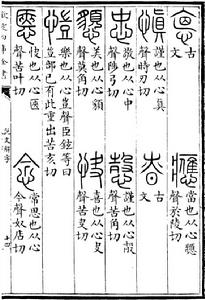 悳 古
文
應 當也从心䧹
聲於陵切
慎 謹也从心真
聲時刃切
昚 古
文
忠 敬也从心中
聲陟弓切
愨 謹也从心㱿
聲苦角切
懇 美也从心䫉
聲莫角切
快 喜也从心夬
聲苦夬切
愷 樂也从心豈聲臣鉉等曰
豈部已有此重出苦亥切
㥦 快也从心匧
聲苦叶切
念 常思也从心
今聲奴店切
欽定四庫全書
說文解字